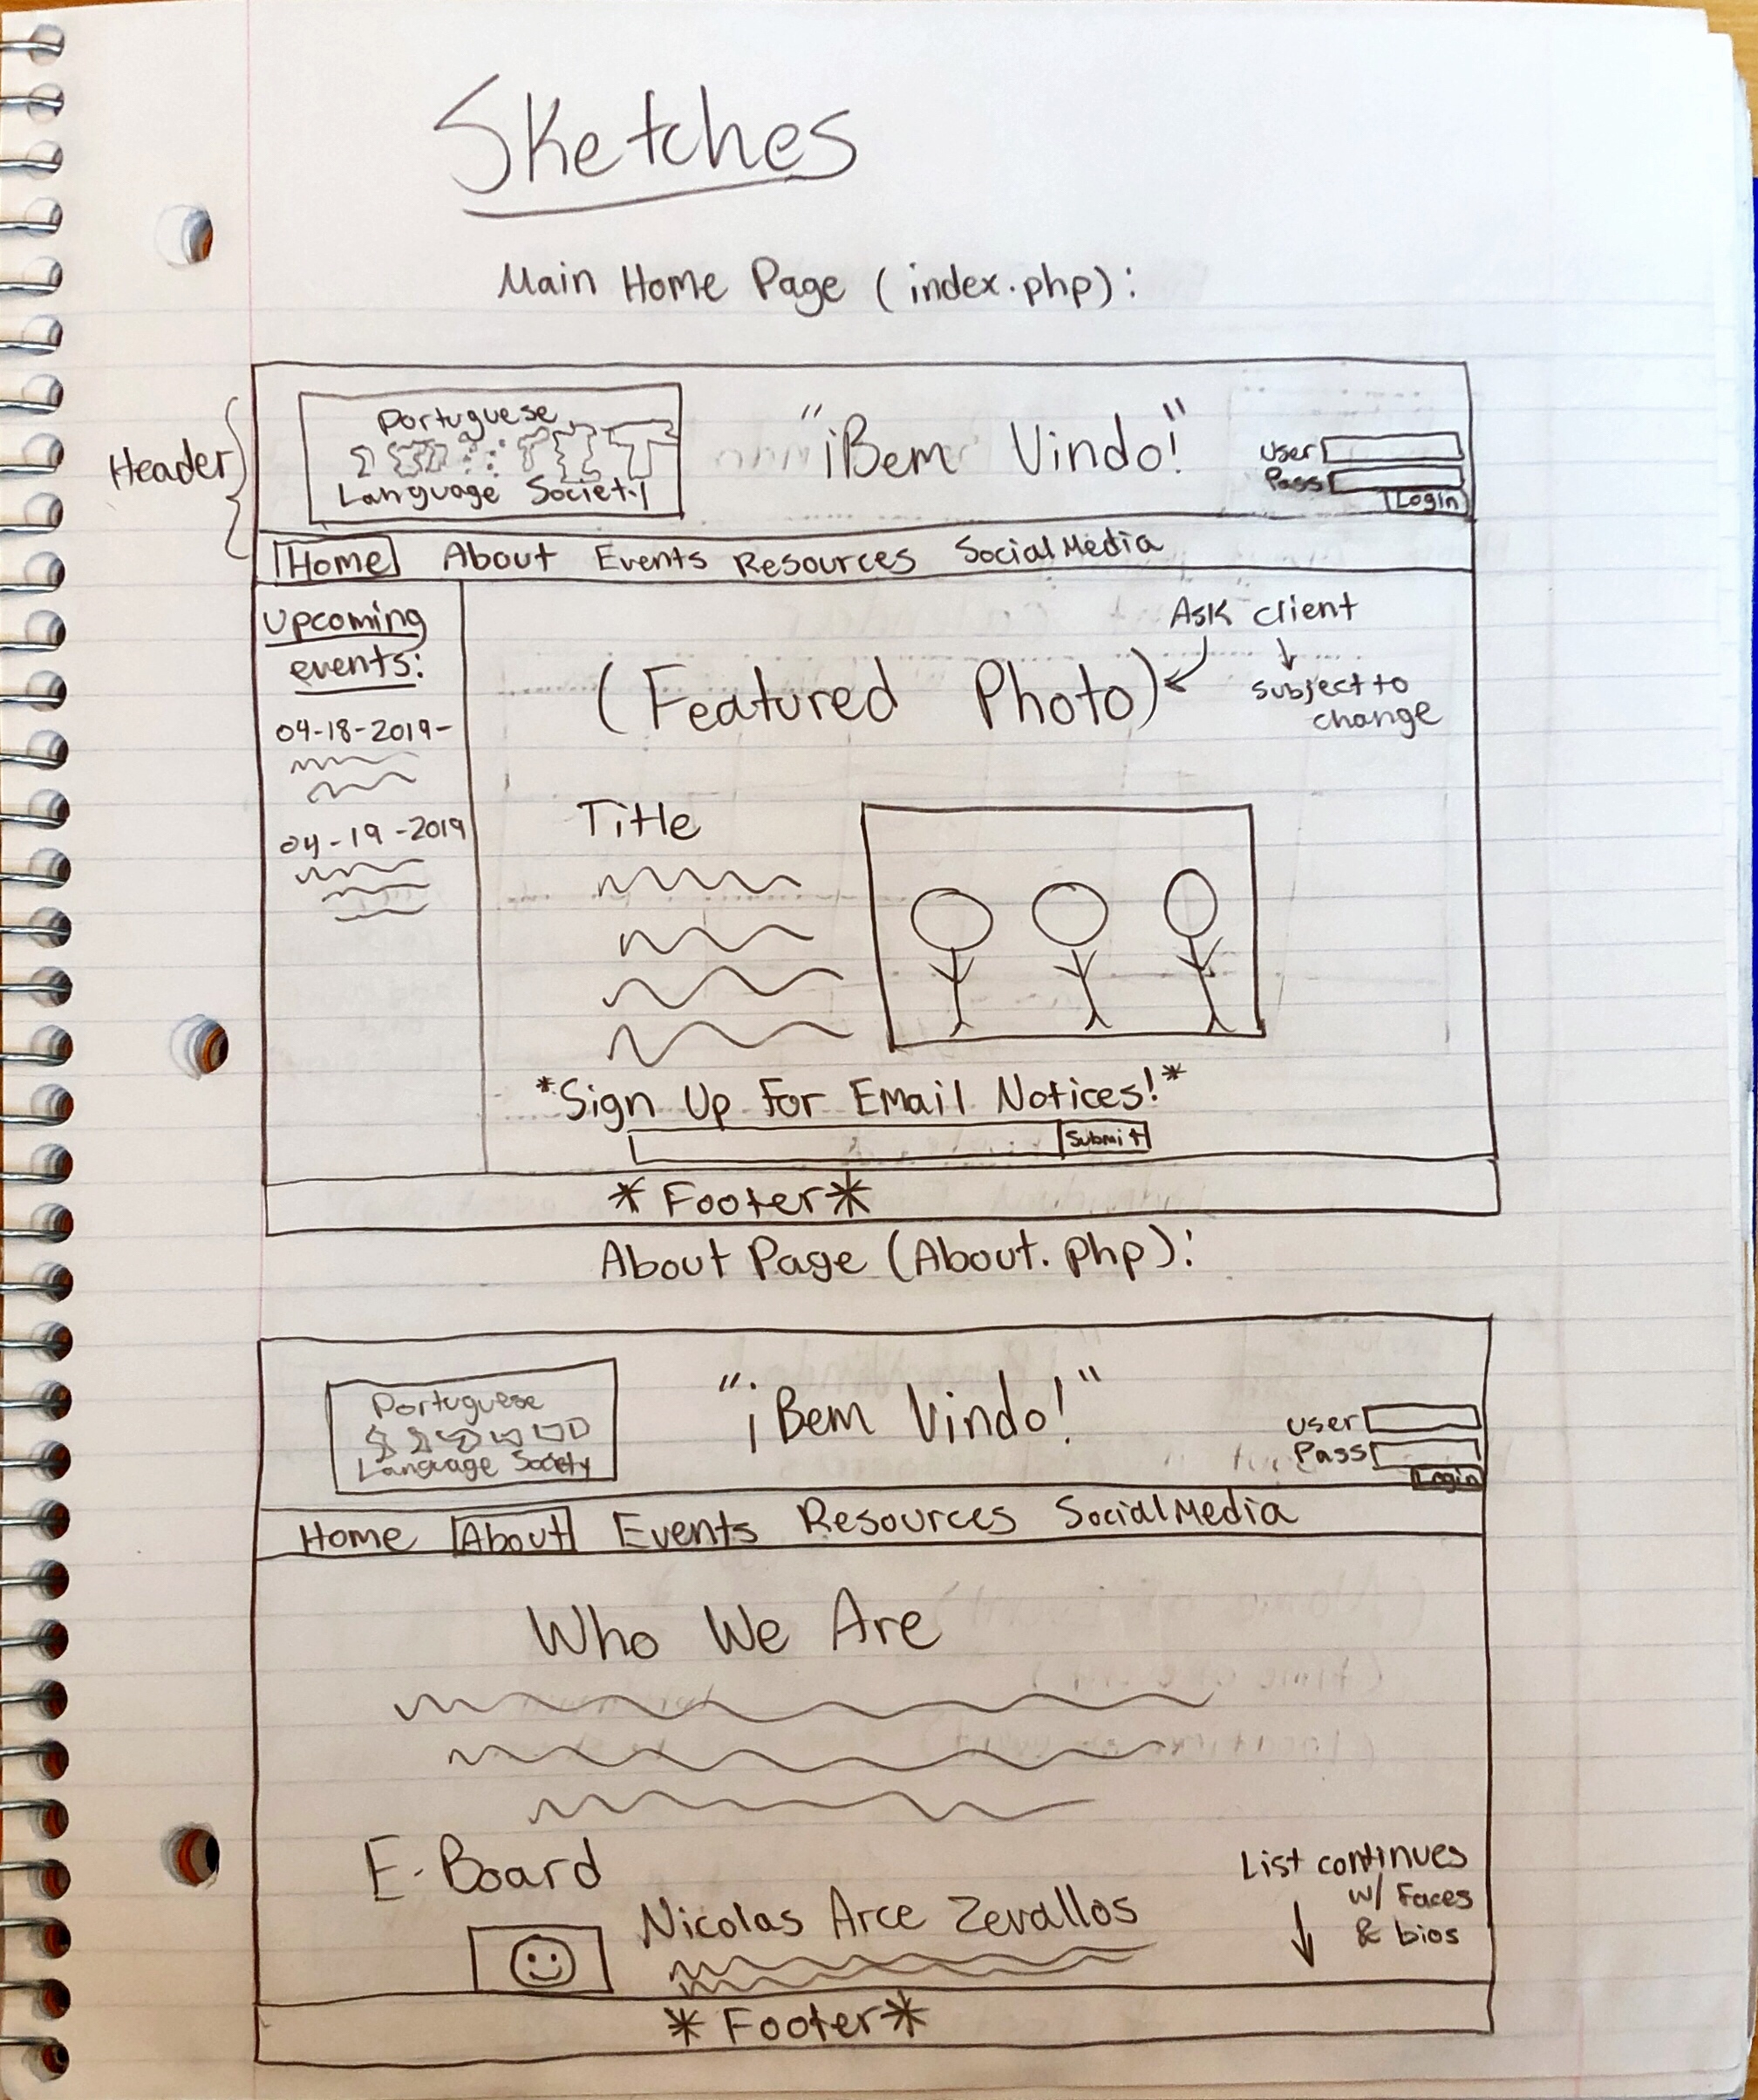 Sketches
Main Home Page (index.php):
Header
Portuguese
Language Society
"¡Bem Vindo!"
User
Pass
Login
Home About Events Resources Social Media
Upcoming
events:
04-18-2019-
04-19-2019
Ask client
subject to
change
(Featured Photo)
Title
*Sign Up For Email Notices!*
Submit
*Footer*
About Page (About.php):
Portuguese
Language Society
"¡Bem Vindo!"
User
Pass
Login
Home About Events Resources Social Media
Who We Are
E-Board
Nicolas Arce Zevallos
List continues
w/ Faces
& bios
*Footer*